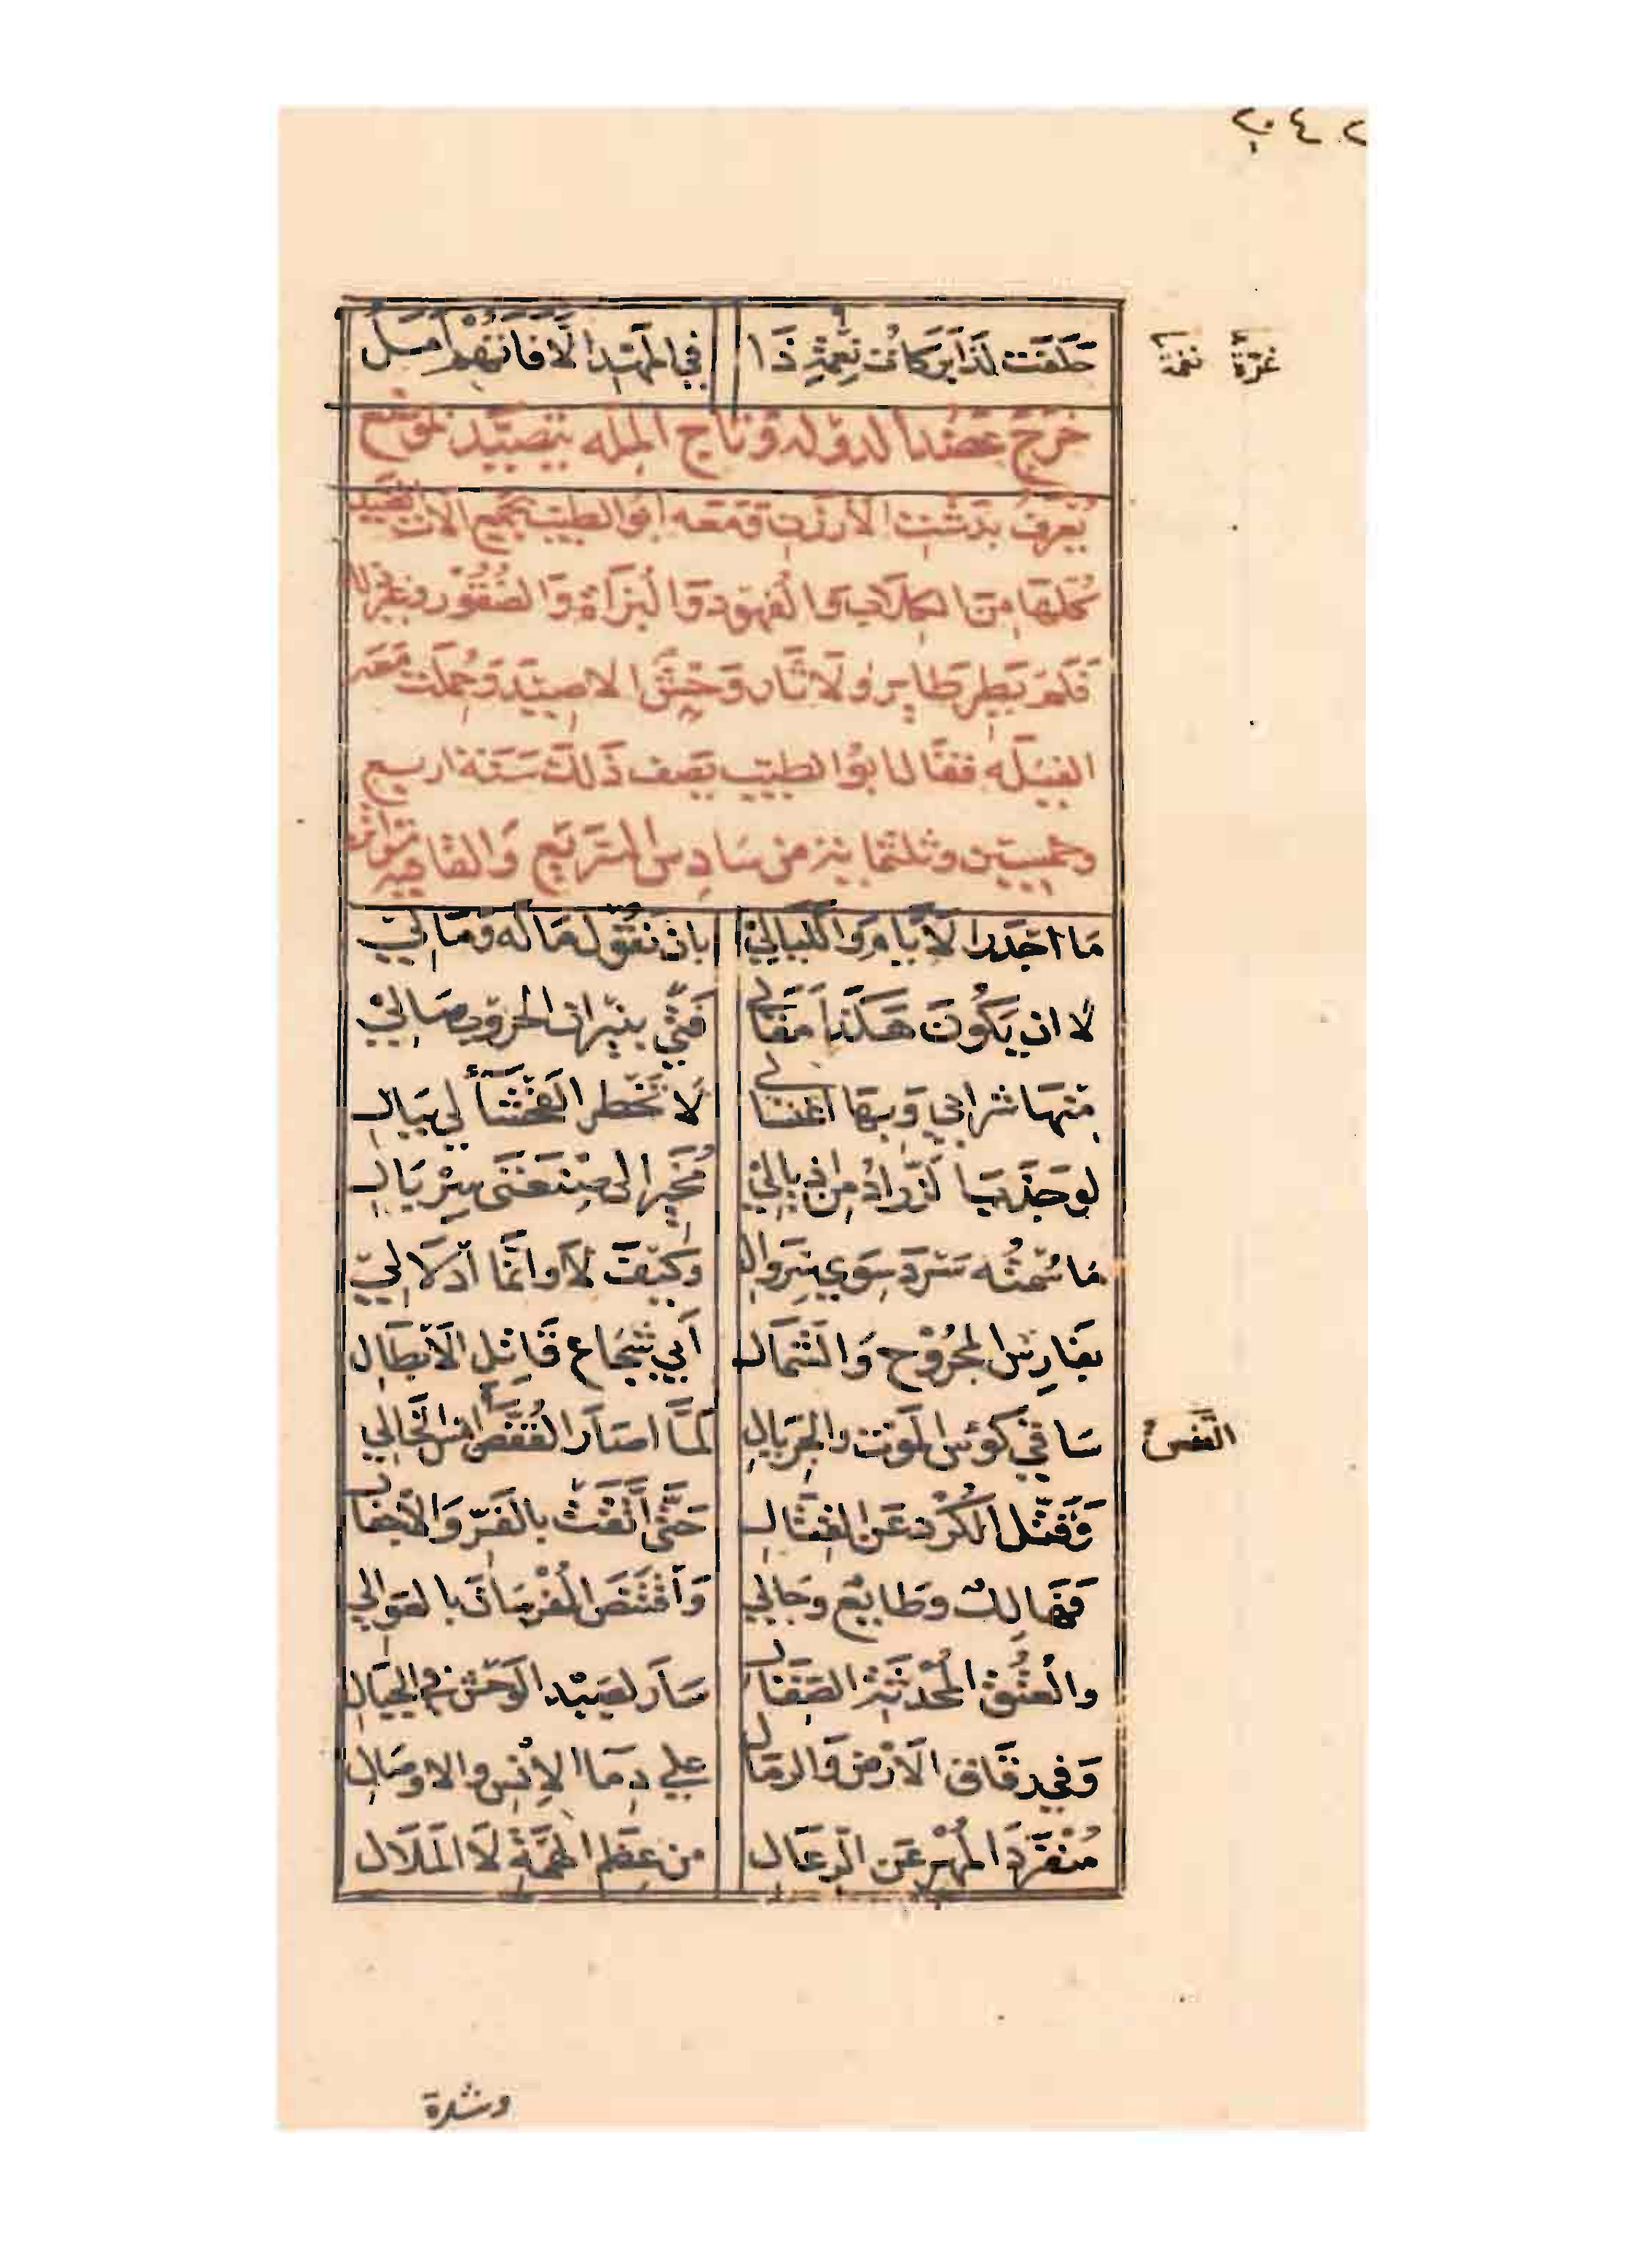 ٢٠٤ب
حَلَفَت لَذَا بَرَكَاتُ نِعْمَةِ ذَا فِي المَهْدِ أَلَّا فَاتَهُمْ أَمَلُ
غرّة نغمة
خَرَجَ عَضُد الدَوله وَتاج المِلّه يتَصَيَّد بموضع
يُعرف بدَشْتِ الأرزن وَمَعَه أبو الطيب بجميع الآت الصَّيد
كُلهَا مِن الكِلَابِ وَالفُهود وَالبُزَاةِ وَالصُّقُور وغير ذلك
فَلَم يَطِر طاير وَلَا ثار وَحْشٌ الا صِيْدَ وَحُملت مَعَه
الفيَلَه فقال ابو الطيب يَصف ذَلك سَنة اربع
وخمسين وثلثماية من سَادِس المترَبّع وَالقافية متواتر
مَا اجْدَرَ الأَيَّامَ وَاللَّيَالِيْ بان تَقُوْلَ مَا لَه وَمَا لِيْ
لا ان يَكُونَ هَكَذَا مَقَالِي فَتًى بِنِيْرانِ الحروبِ صَالِيْ
مِنْهَا شَرابي وَبِهَا اغتسالي لَا تَخْطر الفَحْشَآءُ لِي بِبَالِ
لو جَذَبَ الزَّرَّادُ مِن اذيالِيْ مُخَيِّرا لِي صِنْعَتَي سِرْبَالِ
مَا سُمْتُه سَرْدَ سِوَى سِروَالِ وَكَيْفَ لَا وانَّمَا ادْلَالِيْ
بفَارِسِ المجْرُوْحِ وَالشَّمَالِ أَبِي شُجَاعٍ قَاتِلِ الأَبْطَالِ
سَاقِي كؤسِ المَوت والجِرْيَالِ لَمَّا اصَارَ القُفْصَ امسِ الخَالِي
القفصُ
وَقَتَّلَ الكُرْدَ عَنِ القِتَالِ حَتَّى اتَّقَتْ بالفَرّ وَالاجْفَالِ
فَهَالِكٌ وطَايِعٌ وجَالِي وَاقْتَنَصَ الفُرْسَانَ بالعَوالي
والعُتُقِ المُحْدَثَةِ الصِّقَالِ سَارَ لِصَيْدِ الوَحْشِ في الجِبَالِ
وَفِي رِقَاقِ الأَرْضِ وَالرِمَالِ علَى دِمَا الإنْسِ والاوصَالِ
مُنْفَرِدَ المُهْرِ عَنِ الرِعَالِ من عِظَمِ الهِمَّةِ لَا المَلَالِ
وشدة